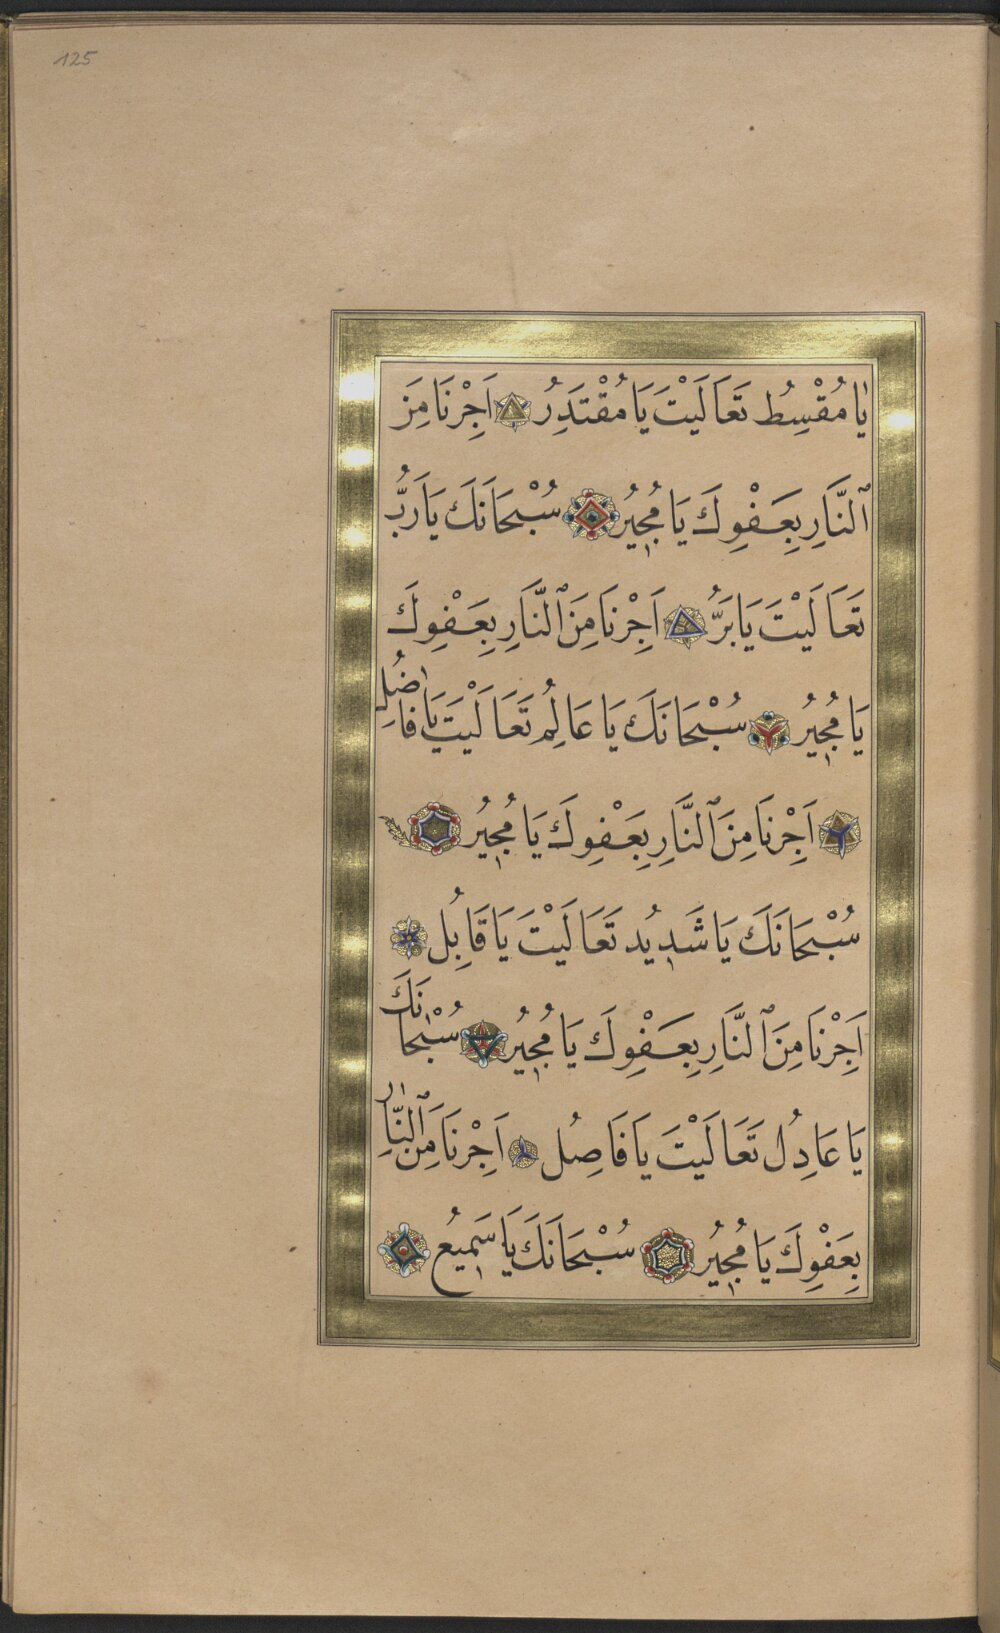 125
يَا مُقْسِطُ تَعَالَيْتَ يَا مُقْتَدِرُ اَجِرْنَا مِنَ
ٱلنَّارِ بِعَفْوِكَ يَا مُجِيرُ سُبْحَانَكَ يَا رَبُّ
تَعَالَيْتَ يَا بَرُّ اَجِرْنَا مِنَ ٱلنَّارِ بِعَفْوِكَ
يَا مُجِيرُ سُبْحَانَكَ يَا عَالِمُ تَعَالَيْتَ يَا فَاضِلُ
اَجِرْنَا مِنَ ٱلنَّارِ بِعَفْوِكَ يَا مُجِيرُ
سُبْحَانَكَ يَا شَدِيدُ تَعَالَيْتَ يَا قَابِلُ
اَجِرْنَا مِنَ ٱلنَّارِ بِعَفْوِكَ يَا مُجِيرُ سُبْحَانَكَ
يَا عَادِلُ تَعَالَيْتَ يَا فَاصِلُ اَجِرْنَا مِنَ ٱلنَّارِ
بِعَفْوِكَ يَا مُجِيرُ سُبْحَانَكَ يَا سَمِيعُ